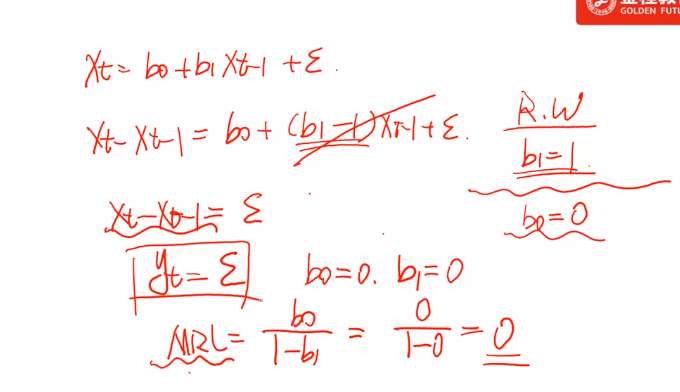 GOLDEN FUTU
Xt = b0 + b1 Xt-1 + ε.
Xt - Xt-1 = b0 + (b1 - 1) Xt-1 + ε.
R.W
b1 = 1
Xt - Xt-1 = ε
b0 = 0
yt = ε
b0 = 0. b1 = 0
MRL = b0 / 1-b1 = 0 / 1-0 = 0